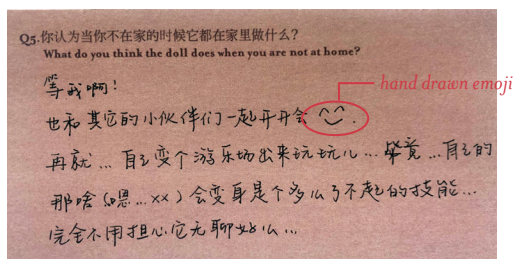 Q5.你认为当你不在家的时候它都在家里做什么？
What do you think the doll does when you are not at home?
等我啊！
hand drawn emoji
也和其它的小伙伴们一起开开会 .
再就…自己变个游乐场出来玩玩儿…毕竟…自己的
那啥（嗯…xx）会变身是个多么了不起的技能…
完全不用担心它无聊好么…